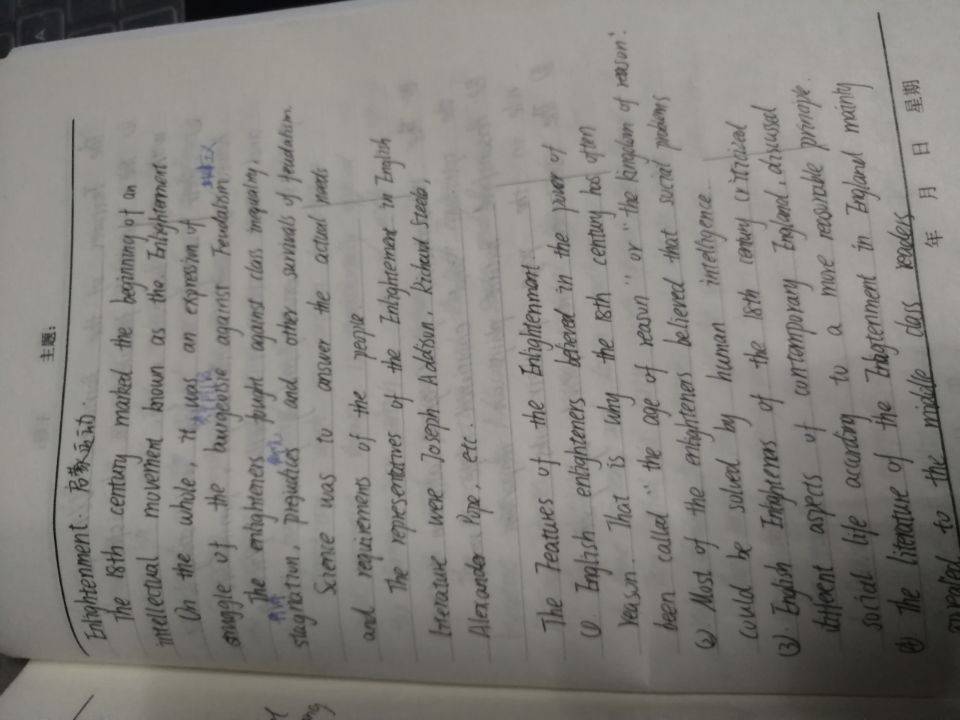 主题:
Enlightenment 启蒙运动
The 18th century marked the beginning of an
intellectual movement known as the Enlightenment
On the whole, it was an expression of
struggle of the bourgeoisie against Feudalism
The enlighteners fought against class inequality,
stagnation, prejudices and other survivals of feudalism.
Science was to answer the actual needs
and requirements of the people
The representatives of the Enlightenment in English
literature were Joseph Addison, Richard Steele,
Alexander Pope, etc.
The Features of the Enlightenment
(1) English enlighteners believed in the power of
reason. That is why the 18th century has often
been called "the age of reason" or "the kingdom of reason".
(2) Most of the enlighteners believed that social problems
could be solved by human intelligence
(3) English Enlighteners of the 18th century criticized
different aspects of contemporary England, discussed
social life according to a more reasonable principle.
(4) The literature of the Enlightenment in England mainly
appealed to the middle class readers
年 月 日 星期